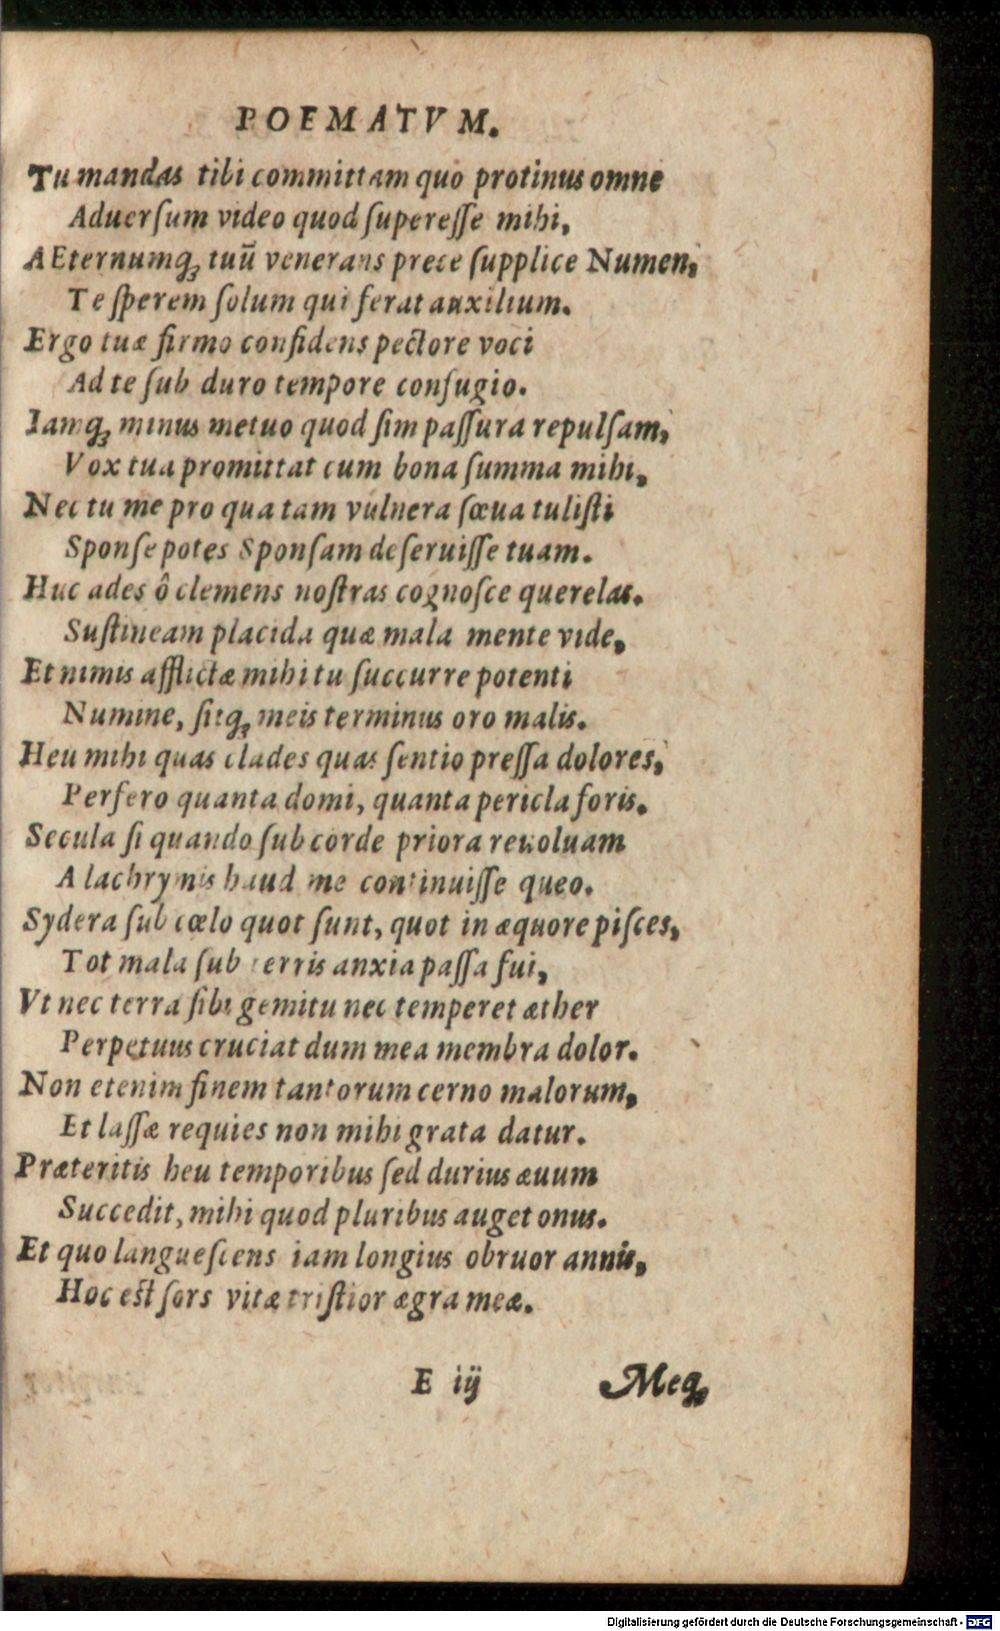 POEMATVM.
Tu mandas tibi committam quo protinus omne
Aduerſum video quod ſupereſſe mihi,
AEternumq́; tuū venerans prece ſupplice Numen,
Te ſperem ſolum qui ferat auxilium.
Ergo tuæ firmo confidens pectore voci
Ad te ſub duro tempore confugio.
Iamq́; minus metuo quod ſim paſſura repulſam,
Vox tua promittat cum bona ſumma mihi,
Nec tu me pro qua tam vulnera ſœua tuliſti
Sponſe potes Sponſam deſeruiſſe tuam.
Huc ades ô clemens noſtras cognoſce querelas.
Suſtineam placida quæ mala mente vide,
Et nimis afflictæ mihi tu ſuccurre potenti
Numine, ſitq́; meis terminus oro malis.
Heu mihi quas clades quas ſentio preſſa dolores,
Perfero quanta domi, quanta pericla foris.
Secula ſi quando ſub corde priora reuoluam
A lachrymis haud me continuiſſe queo.
Sydera ſub cœlo quot ſunt, quot in æquore piſces,
Tot mala ſub terris anxia paſſa fui,
Vt nec terra ſibi gemitu nec temperet æther
Perpetuus cruciat dum mea membra dolor.
Non etenim finem tantorum cerno malorum,
Et laſſæ requies non mihi grata datur.
Præteritis heu temporibus ſed durius æuum
Succedit, mihi quod pluribus auget onus.
Et quo langueſcens iam longius obruor annis,
Hoc eſt ſors vitæ triſtior ægra meæ.
E iij
Meq́;
Digitalisierung gefördert durch die Deutsche Forschungsgemeinschaft - DFG